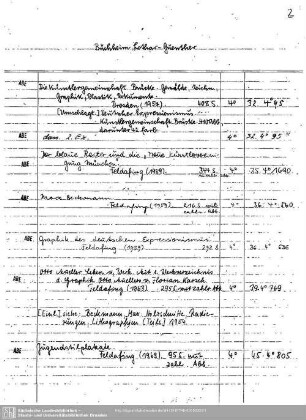 2
Buchheim Lothar-Guenther
ABE Die Künstlergemeinschaft Brücke. Gemälde, Zeichn.
Graphik, Plastik, Dokumente.
(1956) 408 S. 4° 32. 4° 95
(Umschlagt.) Deutscher Expressionismus
Künstlergemeinschaft Brücke
darunter 42 farb.
ABE dass. 2. Ex. 4° 32. 4° 95
ABE Der blaue Reiter und die "Neue Künstlervereinigung München"
Feldafing (1959) 344 S. 4° 35. 4° 1640
ABE Max Beckmann
Feldafing (1959) 216 S. mit 4° 36. 4°
zahlr. Abb.
ABE Graphik des deutschen Expressionismus
Feldafing (1959) 292 S. 4° 36. 4°
ABE Otto Mueller Leben u. Werk. Mit e. Werkverzeichnis
d. Graphik Otto Muellers v. Florian Karsch
Feldafing (1963) 295 S. mit zahlr. Abb. 4° 39. 4° 769
[Einl.] siehe: Beckmann, Max Holzschnitte Radierungen Lithographien [Teils.] 1954
ABE Jugendstilplakate
Feldafing (1969) 95 S. mit 4° 45. 4° 805
zahlr. Abb.
Sächsische Landesbibliothek -
Staats- und Universitätsbibliothek Dresden